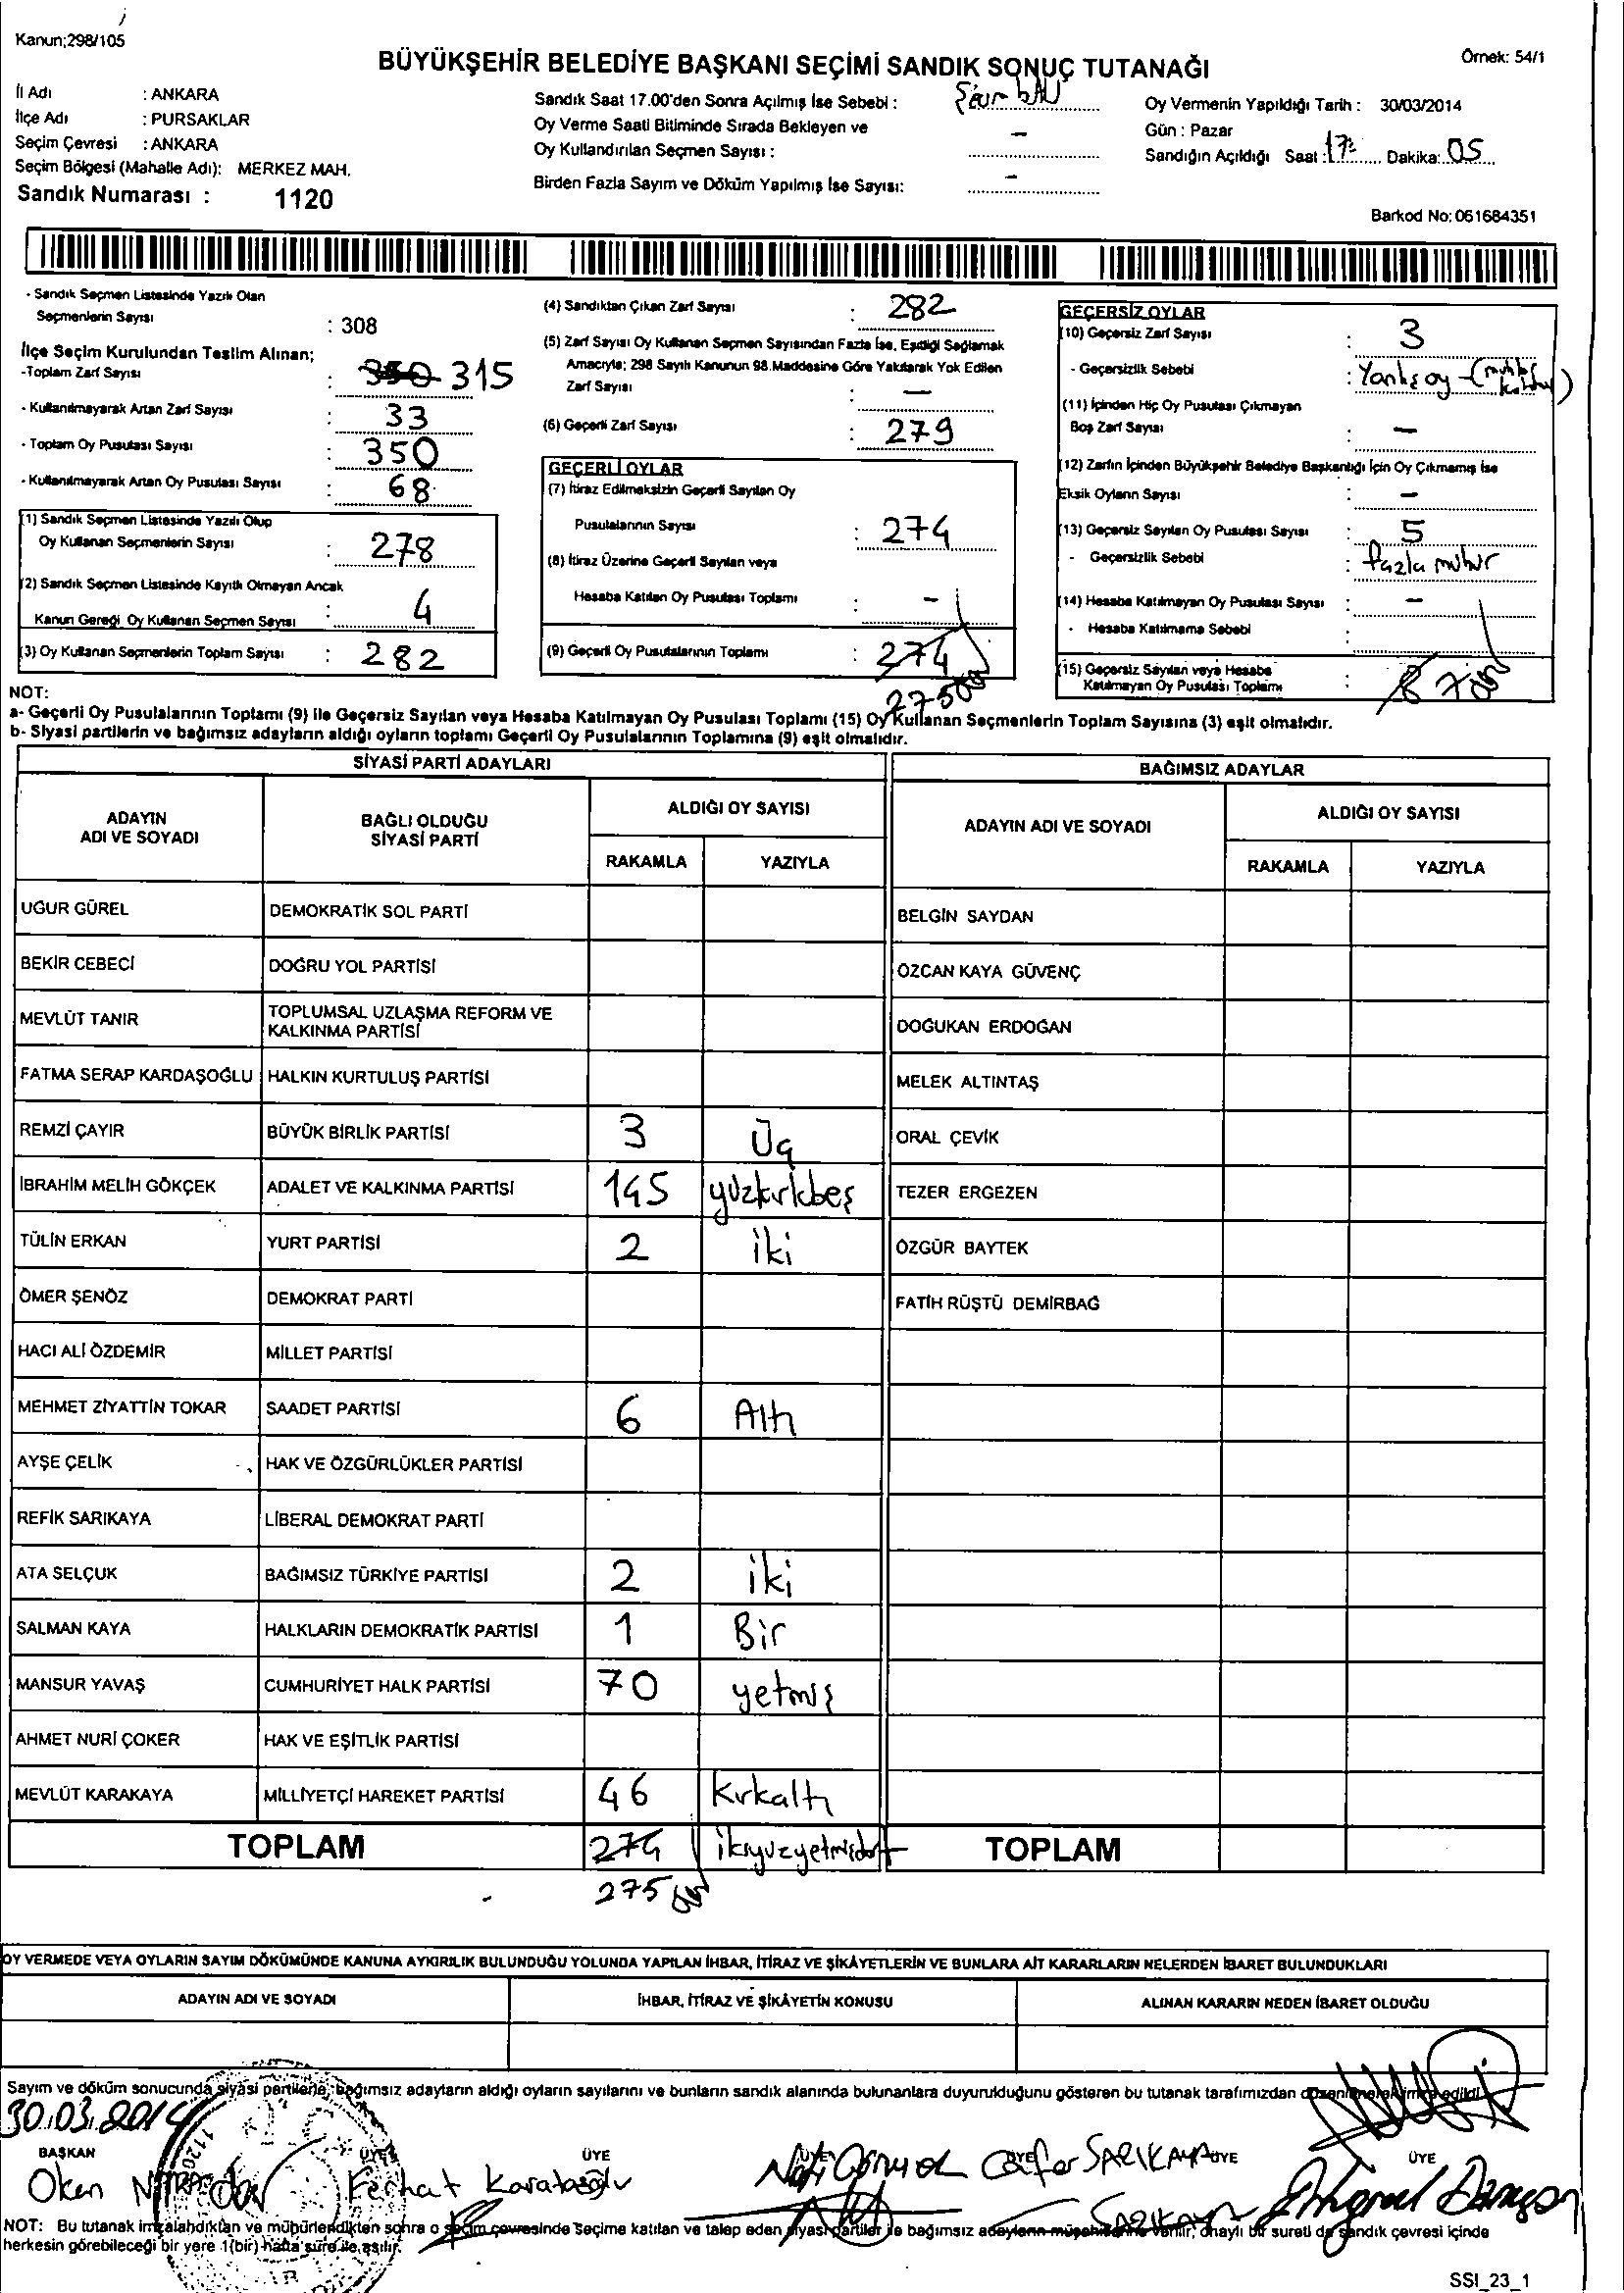 Kanun;298/105
BÜYÜKŞEHİR BELEDİYE BAŞKANI SEÇİMİ SANDIK SONUÇ TUTANAĞI
Örnek: 54/1
İl Adı : ANKARA
İlçe Adı : PURSAKLAR
Seçim Çevresi : ANKARA
Seçim Bölgesi (Mahalle Adı): MERKEZ MAH.
Sandık Numarası : 1120
Sandık Saat 17.00'den Sonra Açılmış İse Sebebi :
Oy Verme Saati Bitiminde Sırada Bekleyen ve
Oy Kullandırılan Seçmen Sayısı : -
Birden Fazla Sayım ve Döküm Yapılmış İse Sayısı: -
Oy Vermenin Yapıldığı Tarih : 30/03/2014
Gün : Pazar
Sandığın Açıldığı Saat : 17: Dakika: 05
Barkod No: 061684351
- Sandık Seçmen Listesinde Yazılı Olan
Seçmenlerin Sayısı : 308
İlçe Seçim Kurulundan Teslim Alınan;
-Toplam Zarf Sayısı : 350 315
- Kullanılmayarak Artan Zarf Sayısı : 33
- Toplam Oy Pusulası Sayısı : 350
- Kullanılmayarak Artan Oy Pusulası Sayısı : 68
(1) Sandık Seçmen Listesinde Yazılı Olup
Oy Kullanan Seçmenlerin Sayısı : 278
(2) Sandık Seçmen Listesinde Kayıtlı Olmayan Ancak
Kanun Gereği Oy Kullanan Seçmen Sayısı : 4
(3) Oy Kullanan Seçmenlerin Toplam Sayısı : 282
(4) Sandıktan Çıkan Zarf Sayısı : 282
(5) Zarf Sayısı Oy Kullanan Seçmen Sayısından Fazla İse, Eşitliği Sağlamak
Amacıyla; 298 Sayılı Kanunun 98.Maddesine Göre Yakılarak Yok Edilen
Zarf Sayısı : -
(6) Geçerli Zarf Sayısı : 279
GEÇERLİ OYLAR
(7) İtiraz Edilmeksizin Geçerli Sayılan Oy
Pusulalarının Sayısı : 274
(8) İtiraz Üzerine Geçerli Sayılan veya
Hesaba Katılan Oy Pusulası Toplamı : -
(9) Geçerli Oy Pusulalarının Toplamı : 274
275
GEÇERSİZ OYLAR
(10) Geçersiz Zarf Sayısı : 3
- Geçersizlik Sebebi : Yanlış oy -
(11) İçinden Hiç Oy Pusulası Çıkmayan
Boş Zarf Sayısı : -
(12) Zarfın İçinden Büyükşehir Belediye Başkanlığı İçin Oy Çıkmamış İse
Eksik Oyların Sayısı : -
(13) Geçersiz Sayılan Oy Pusulası Sayısı : 5
- Geçersizlik Sebebi : fazla mühür
(14) Hesaba Katılmayan Oy Pusulası Sayısı : -
- Hesaba Katılmama Sebebi :
(15) Geçersiz Sayılan veya Hesaba
Katılmayan Oy Pusulası Toplamı : 8 7
NOT:
a- Geçerli Oy Pusulalarının Toplamı (9) ile Geçersiz Sayılan veya Hesaba Katılmayan Oy Pusulası Toplamı (15) Oy Kullanan Seçmenlerin Toplam Sayısına (3) eşit olmalıdır.
b- Siyasi partilerin ve bağımsız adayların aldığı oyların toplamı Geçerli Oy Pusulalarının Toplamına (9) eşit olmalıdır.
SİYASİ PARTİ ADAYLARI
ADAYIN ADI VE SOYADI
BAĞLI OLDUĞU SİYASİ PARTİ
ALDIĞI OY SAYISI
RAKAMLA YAZIYLA
UĞUR GÜREL DEMOKRATİK SOL PARTİ
BEKİR CEBECİ DOĞRU YOL PARTİSİ
MEVLÜT TANIR TOPLUMSAL UZLAŞMA REFORM VE
KALKINMA PARTİSİ
FATMA SERAP KARDAŞOĞLU HALKIN KURTULUŞ PARTİSİ
REMZİ ÇAYIR BÜYÜK BİRLİK PARTİSİ 3 Üç
İBRAHİM MELİH GÖKÇEK ADALET VE KALKINMA PARTİSİ 145 yüzkırkbeş
TÜLİN ERKAN YURT PARTİSİ 2 iki
ÖMER ŞENÖZ DEMOKRAT PARTİ
HACI ALİ ÖZDEMİR MİLLET PARTİSİ
MEHMET ZİYATTİN TOKAR SAADET PARTİSİ 6 Altı
AYŞE ÇELİK HAK VE ÖZGÜRLÜKLER PARTİSİ
REFİK SARIKAYA LİBERAL DEMOKRAT PARTİ
ATA SELÇUK BAĞIMSIZ TÜRKİYE PARTİSİ 2 iki
SALMAN KAYA HALKLARIN DEMOKRATİK PARTİSİ 1 Bir
MANSUR YAVAŞ CUMHURİYET HALK PARTİSİ 70 yetmiş
AHMET NURİ ÇOKER HAK VE EŞİTLİK PARTİSİ
MEVLÜT KARAKAYA MİLLİYETÇİ HAREKET PARTİSİ 46 Kırkaltı
TOPLAM 274 ikiyüzyetmişdört
275
BAĞIMSIZ ADAYLAR
ADAYIN ADI VE SOYADI
ALDIĞI OY SAYISI
RAKAMLA YAZIYLA
BELGİN SAYDAN
ÖZCAN KAYA GÜVENÇ
DOĞUKAN ERDOĞAN
MELEK ALTINTAŞ
ORAL ÇEVİK
TEZER ERGEZEN
ÖZGÜR BAYTEK
FATİH RÜŞTÜ DEMİRBAĞ
TOPLAM
OY VERMEDE VEYA OYLARIN SAYIM DÖKÜMÜNDE KANUNA AYKIRILIK BULUNDUĞU YOLUNDA YAPILAN İHBAR, İTİRAZ VE ŞİKÂYETLERİN VE BUNLARA AİT KARARLARIN NELERDEN İBARET BULUNDUKLARI
ADAYIN ADI VE SOYADI
İHBAR, İTİRAZ VE ŞİKÂYETİN KONUSU
ALINAN KARARIN NEDEN İBARET OLDUĞU
Sayım ve döküm sonucunda siyasi partilerle, bağımsız adayların aldığı oyların sayılarını ve bunların sandık alanında bulunanlara duyurulduğunu gösteren bu tutanak tarafımızdan düzenlenerek imza edildi.
30.03.2014
BAŞKAN ÜYE ÜYE ÜYE ÜYE ÜYE ÜYE
Ferhat Cafer SARIKAYA
NOT: Bu tutanak imzalandıktan ve mühürlendikten sonra o seçim çevresinde Seçime katılan ve talep eden siyasi partiler ile bağımsız adayların müşahitlerine verilir, onaylı bir sureti de sandık çevresi içinde
herkesin görebileceği bir yere 1(bir) hafta süre ile asılır.
SSI_23_1